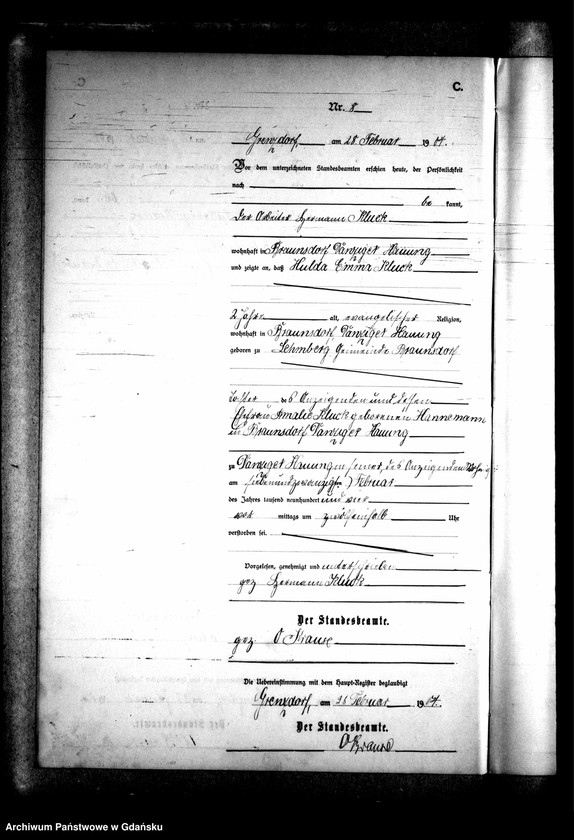 C.
Nr. 8
Grenzdorf, am 28 Februar 1904.
Vor dem unterzeichneten Standesbeamten erschien heute, der Persönlichkeit
nach
be kannt,
der Arbeiter Hermann Kluck
wohnhaft in Braunsdorf Danziger Hauung
und zeigte an, daß Hulda Emma Kluck
2 Jahre alt, evangelischer Religion,
wohnhaft in Braunsdorf, Danziger Hauung
geboren zu Lehmberg Gemeinde Braunsdorf
Tochter des Anzeigenden und dessen
Ehefrau Amalie Kluck geborenen Hannemann
in Braunsdorf Danziger Hauung
zu Danziger Hauung in seiner, des Anzeigenden
am siebenundzwanzigten Februar
des Jahres tausend neunhundert und vier
vor mittags um zwölfeinhalb Uhr
verstorben sei.
Vorgelesen, genehmigt und unterschrieben
gez Hermann Kluck
Der Standesbeamte.
gez. O Krause
Die Uebereinstimmung mit dem Haupt-Register beglaubigt
Grenzdorf, am 28 Februar 1904.
Der Standesbeamte.
O Krause
Archiwum Państwowe w Gdańsku